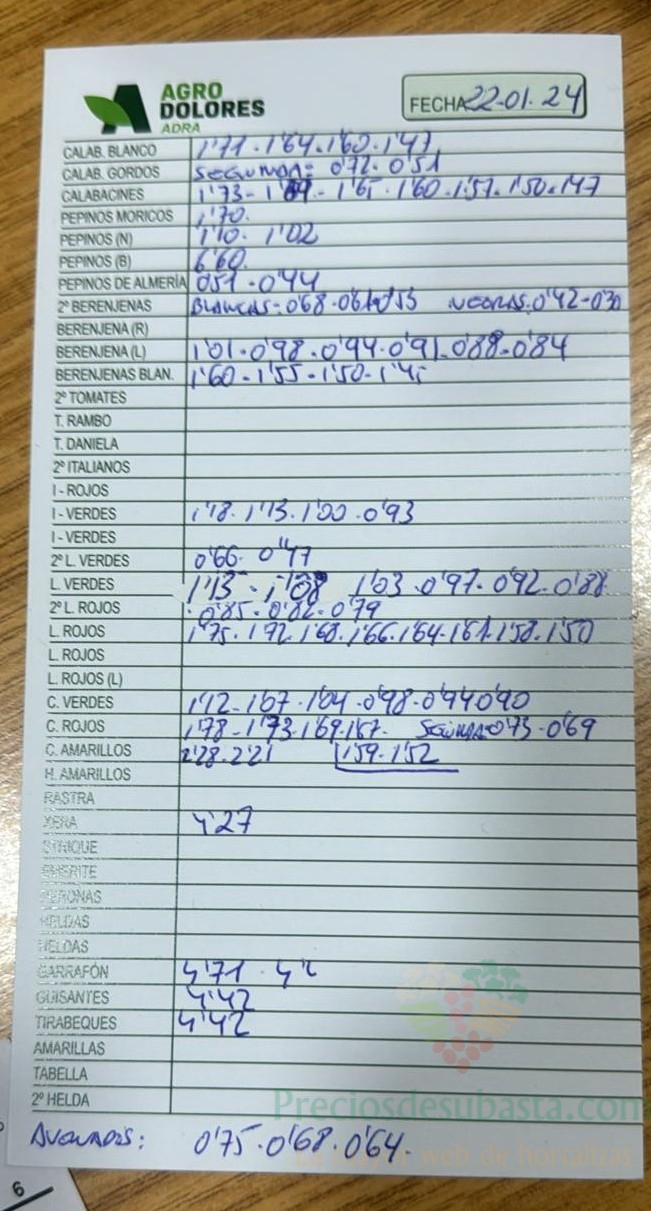 AGRO
DOLORES
ADRA
FECHA 22-01-24
CALAB. BLANCO 1'71-1'64-1'60-1'47
CALAB. GORDOS SEGUNDA= 0'72-0'51
CALABACINES 1'73- - 1'65-1'60-1'57-1'50-1'47
PEPINOS MORICOS 1'70.
PEPINOS (N) 1'10- 1'02
PEPINOS (B) 6'60
PEPINOS DE ALMERÍA 0'51-0'44
2º BERENJENAS BLANCAS=0'68-0'61-0'53 NEGRAS:0'42-0'30
BERENJENA (R)
BERENJENA (L) 1'01-0'98-0'94-0'91-0'88-0'84
BERENJENAS BLAN. 1'60-1'55-1'50-1'45
2º TOMATES
T. RAMBO
T. DANIELA
2º ITALIANOS
I - ROJOS
I - VERDES 1'18-1'13-1'00-0'93
I - VERDES
2º L. VERDES 0'66- 0'47
L. VERDES 1'13-1'08 1'03-0'97-0'92-0'88
2º L. ROJOS -0'85-0'82-0'79
L. ROJOS 1'75-1'72-1'68-1'66-1'64-1'61-1'58-1'50
L. ROJOS
L. ROJOS (L)
C. VERDES 1'12-1'07-1'04-0'98-0'94-0'90
C. ROJOS 1'78-1'73-1'69-1'67- SEGUNDA 0'73-0'69
C. AMARILLOS 2'28-2'21 1'59-1'52
H. AMARILLOS
RASTRA
XERA 4'27
STRIQUE
EMERITE
PERONAS
HELDAS
HELDAS
GARRAFÓN 4'71
GUISANTES 4'42
TIRABEQUES 4'42
AMARILLAS
TABELLA
2º HELDA
0'75-0'68-0'64.
Preciosdesubasta.com
La mayor web de hortalizas
6